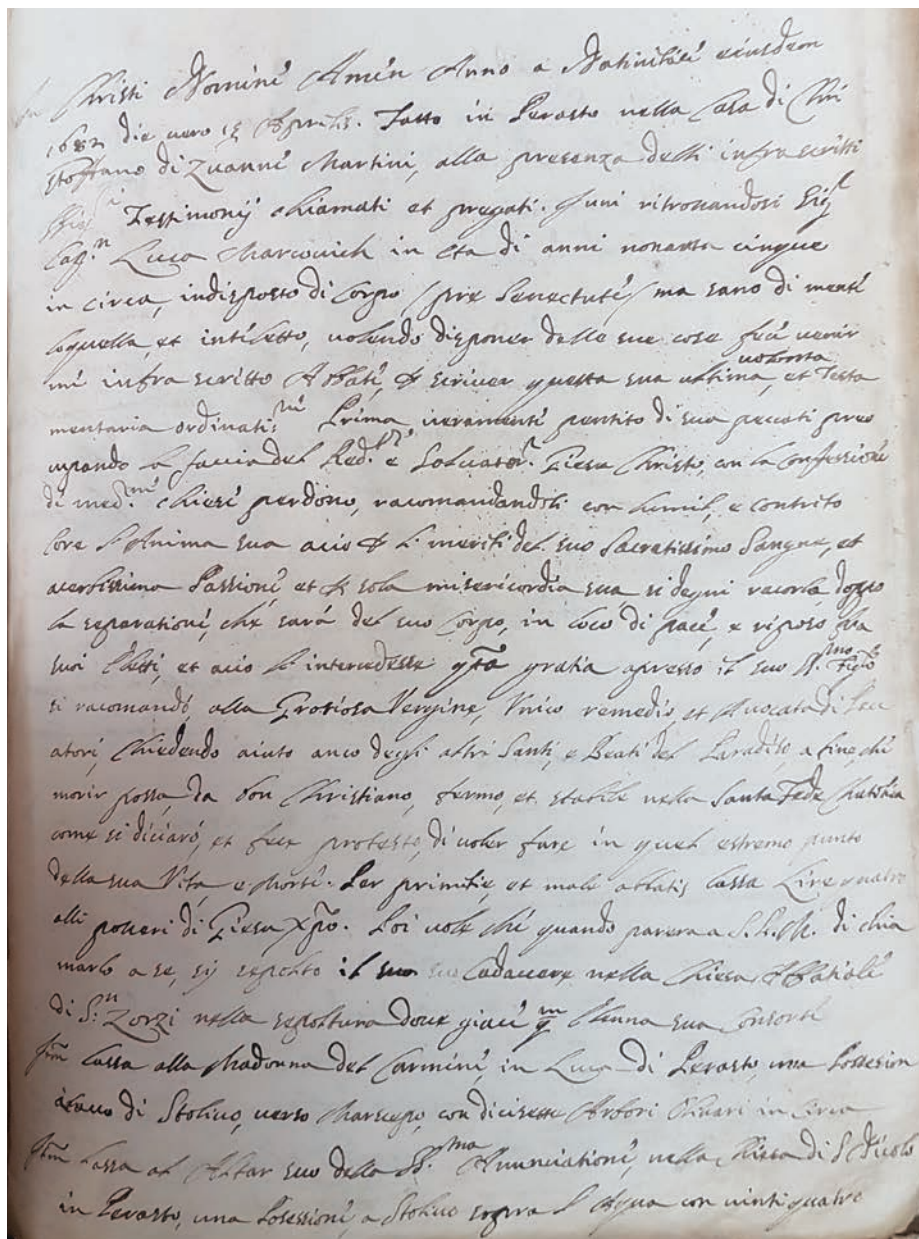 In Christi Nomine Amen Anno a Nativitate eiusdem
1682 die vero 15 Aprilis. Fatto in Perasto nella Casa di Cri
stoffano di Zuanne Martini, alla presenza delli infrascritti
Testimonij chiamati et pregati. Quni ritrovandosi Sig.r
Cap.n Luca Marcovich in eta di anni nonanta cinque
in circa, indisposto di Corpo (pre Senectute) ma sano di mente
loquella, et inteletto, volendo disponer delle sue cose fece venir
me infra scritto Abbate, scriver questa sua ultima volonta, et Testa
mentaria ordinati:ne Prima veramente pentito di sua peccati preo
cupando la faccia del Red.re e Salvator. Giesu Christo, con la Confessione
di med.mi chiese perdono, racomandandoli con humil, e contrito
Core l'Anima sua acio li meriti del suo Sacratissimo Sangue, et
acerbissima Passione, et sola misericordia sua si degni racorla, doppo
la separatione, che sarà del suo Corpo, in loco di pace, e riposo fra
suoi Eletti, et acio l'intercedesse gratia apresso il suo S.mo Figlo
si racomandò, alla Gratiosa Vergine, Unico remedio, et Avocata di Pec
atori, Chiedendo aiuto anco degli altri Santi, e Beati del Paradiso, a fine, che
morir possa, da bon Christiano, fermo, et stabile nella Santa Fede Chatolica
come si diciarò, et fece protesto, di voler fare in quel estremo punto
della sua Vita e Morte. Per primitie, et male ablatis lassa Lire quatro
alli poveri di Giesu Xpo. Poi vole che quando parera a S. D. M. di chia
marlo a se, sij sepolto il suo Cadavere nella Chiesa Abbatiale
di S:n Zorzi nella sepoltura dove giace Anna sua Consorte
Itm lassa alla Madonna del Carmine, in Luca di Perasto, una Possesion
di Stolivo, verso con dicisette Arbori Olivari in circa
Itm lassa al Altar suo della SS.ma Anunciatione, nella Chiesa di S Nicolo
in Perasto, una Posessione, a Stolivo sopra l'Aqua con vinti quatro